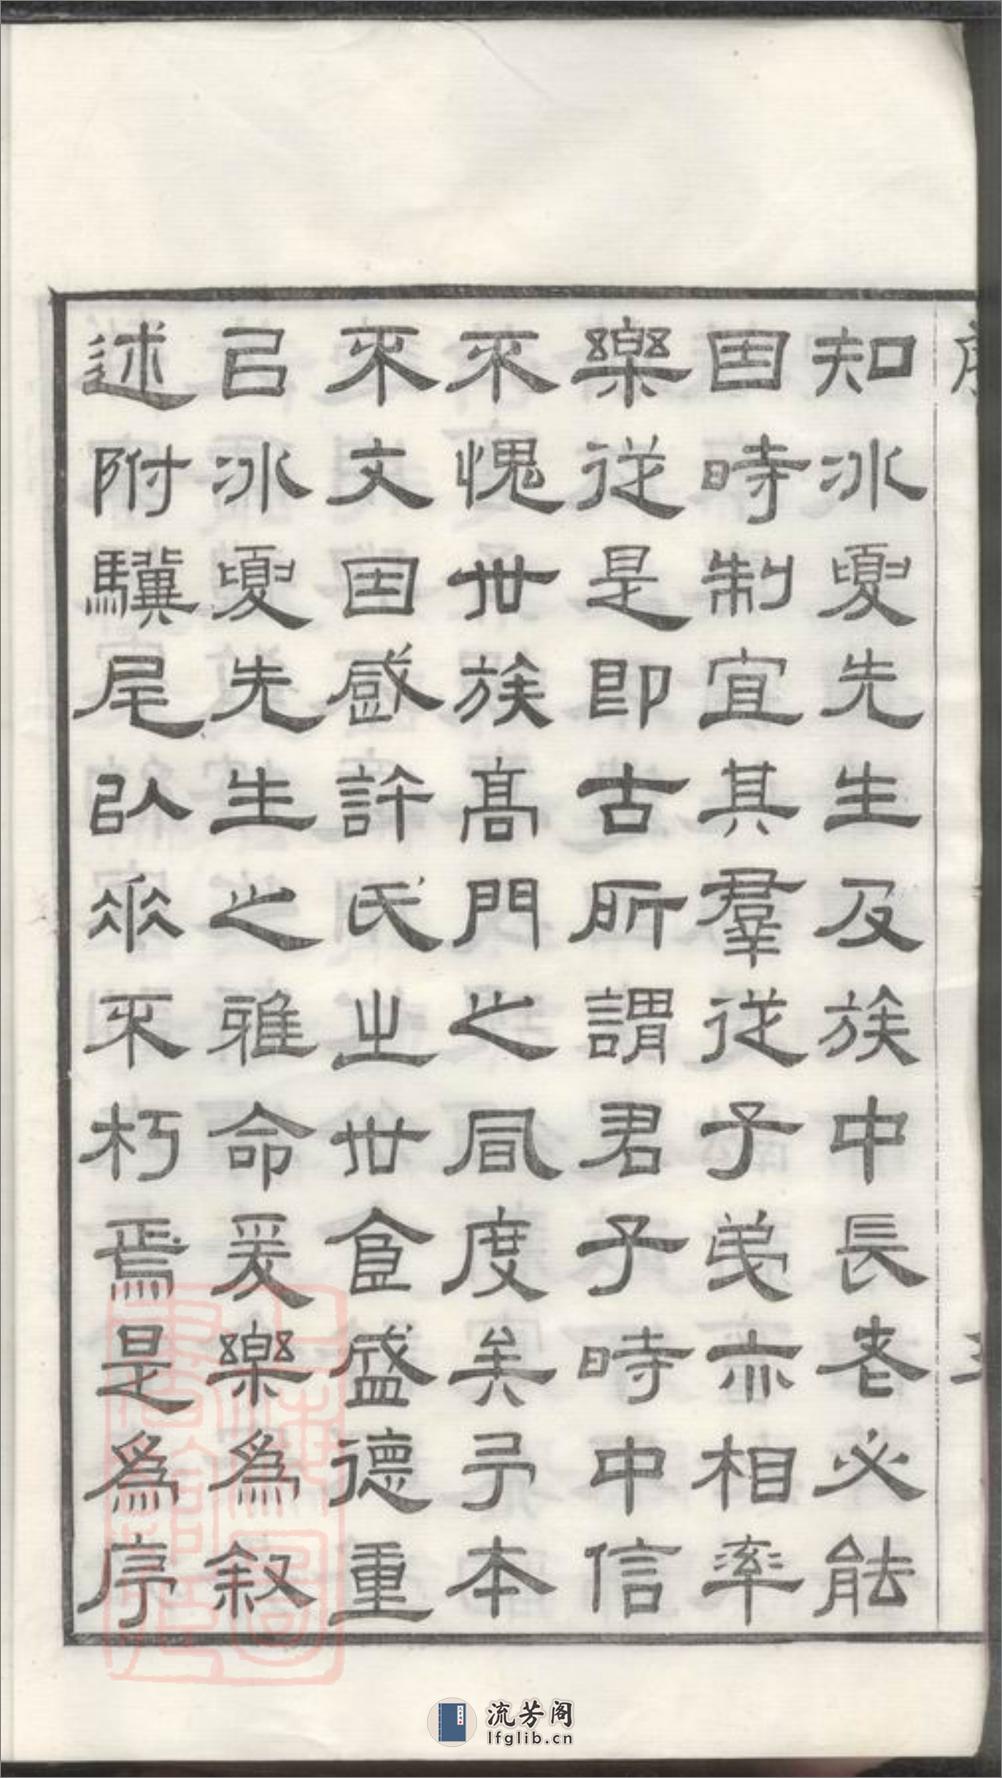 知冰夐先生及族中長老必能
因時制宜其羣從子弟亦相率
樂從是即古所謂君子時中信
不愧世族高門之風度矣予本
不文因感許氏之世食盛德重
以冰夐先生之雅命爰樂為叙
述附驥尾以垂不朽焉是為序
序
流芳阁
lfglib.cn